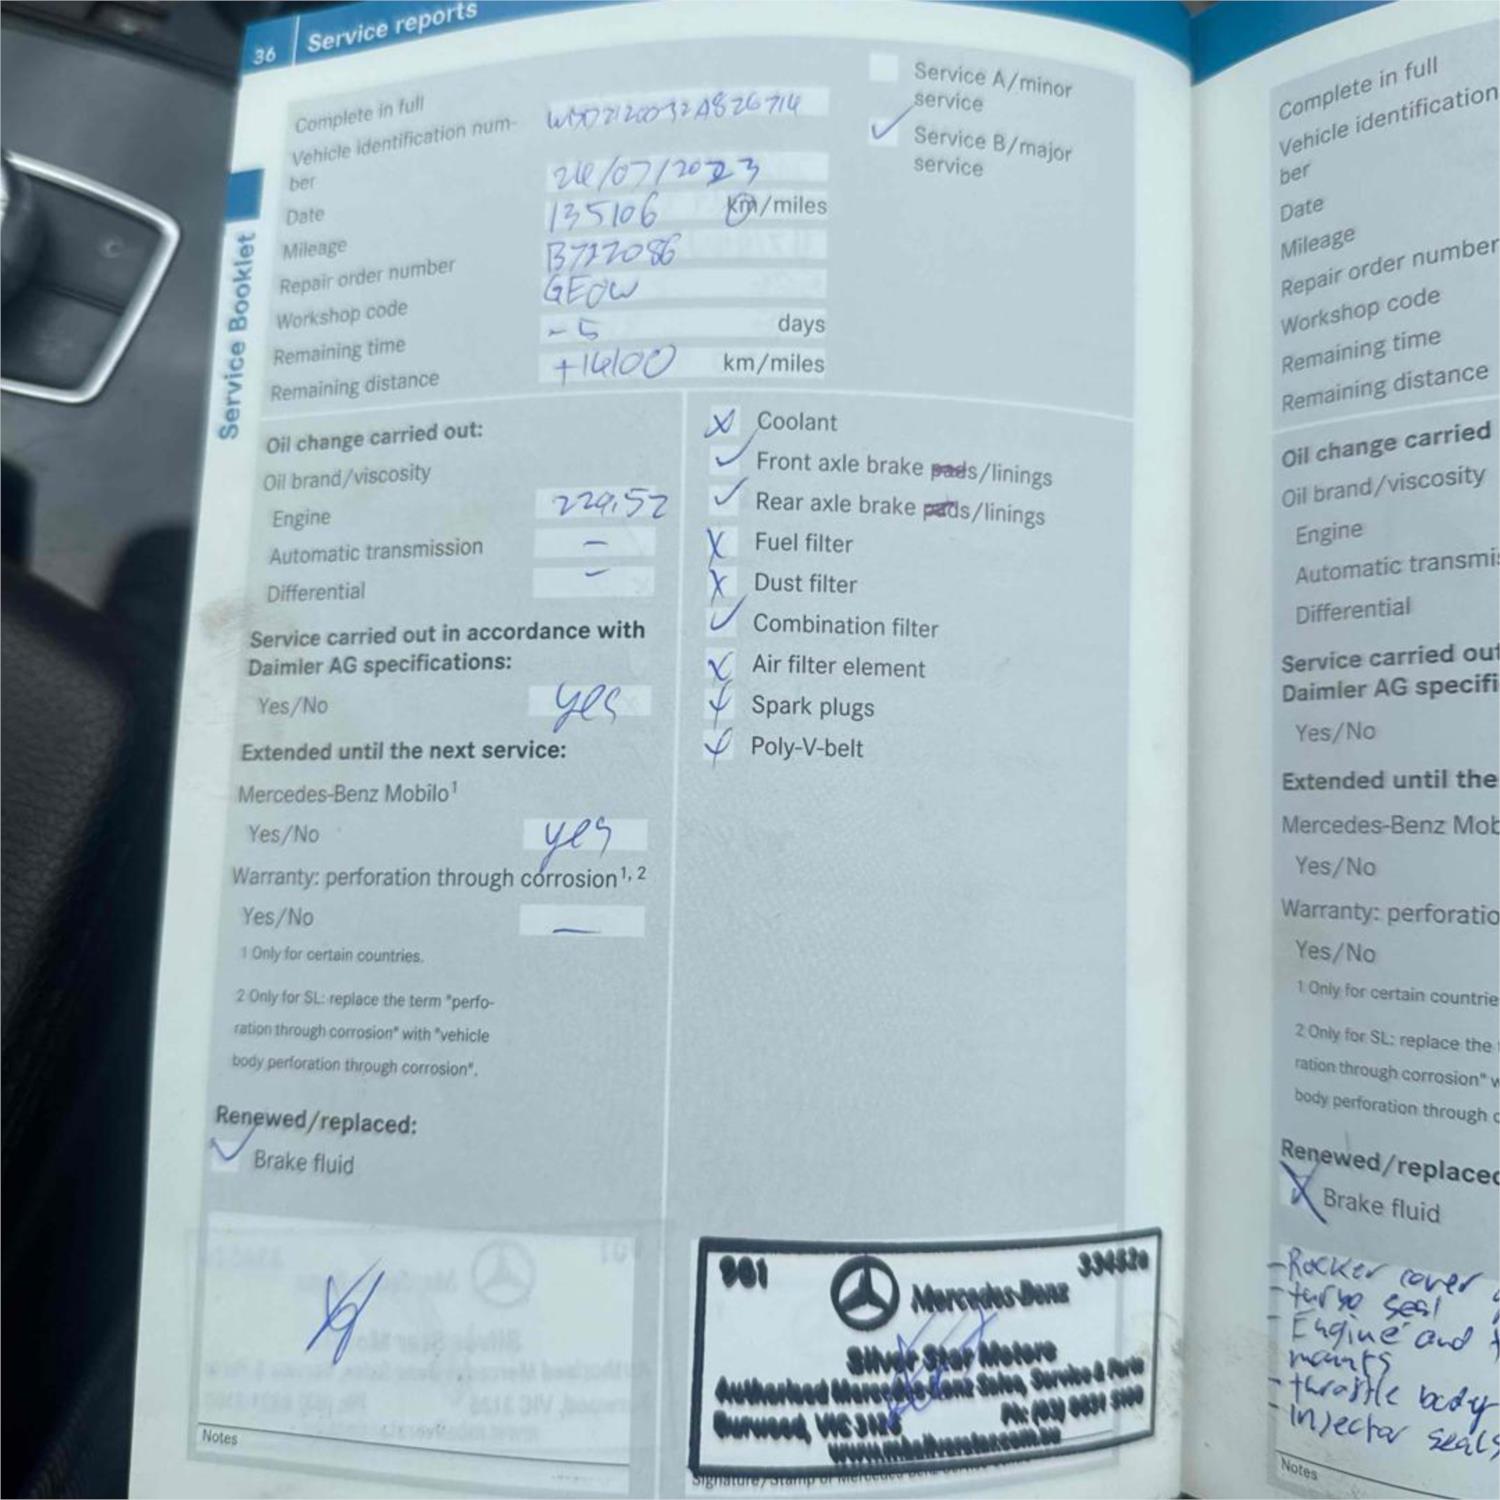 36 Service reports
Complete in full
Vehicle identification num-
ber WDD2120032A826714
Date 24/07/2023
Mileage 135106 km/miles
Repair order number B722086
Workshop code GEOW
Remaining time -5 days
Remaining distance +14100 km/miles
Service A/minor
service
Service B/major
service
Service Booklet
Oil change carried out:
Oil brand/viscosity
Engine 229.52
Automatic transmission –
Differential –
Service carried out in accordance with
Daimler AG specifications:
Yes/No yes
Extended until the next service:
Mercedes-Benz Mobilo¹
Yes/No yes
Warranty: perforation through corrosion¹, ²
Yes/No —
1 Only for certain countries.
2 Only for SL: replace the term "perfo-
ration through corrosion" with "vehicle
body perforation through corrosion".
Renewed/replaced:
Brake fluid
Coolant
Front axle brake pads/linings
Rear axle brake pads/linings
Fuel filter
Dust filter
Combination filter
Air filter element
Spark plugs
Poly-V-belt
Notes
901 Mercedes-Benz 33452a
Silver Star Motors
Authorised Mercedes-Benz Sales, Service & Parts
Burwood, VIC 3125 Ph: (03)
Signature/Stamp of
Complete in full
Vehicle identification
ber
Date
Mileage
Repair order number
Workshop code
Remaining time
Remaining distance
Oil change carried
Oil brand/viscosity
Engine
Automatic transmis
Differential
Service carried out
Daimler AG specifi
Yes/No
Extended until the
Mercedes-Benz Mob
Yes/No
Warranty: perforatio
Yes/No
1 Only for certain countrie
2 Only for SL: replace the
ration through corrosion" w
body perforation through c
Renewed/replaced
Brake fluid
- Rocker cover
- turbo seal
- Engine and
mounts
- throttle body
- Injector seals
Notes